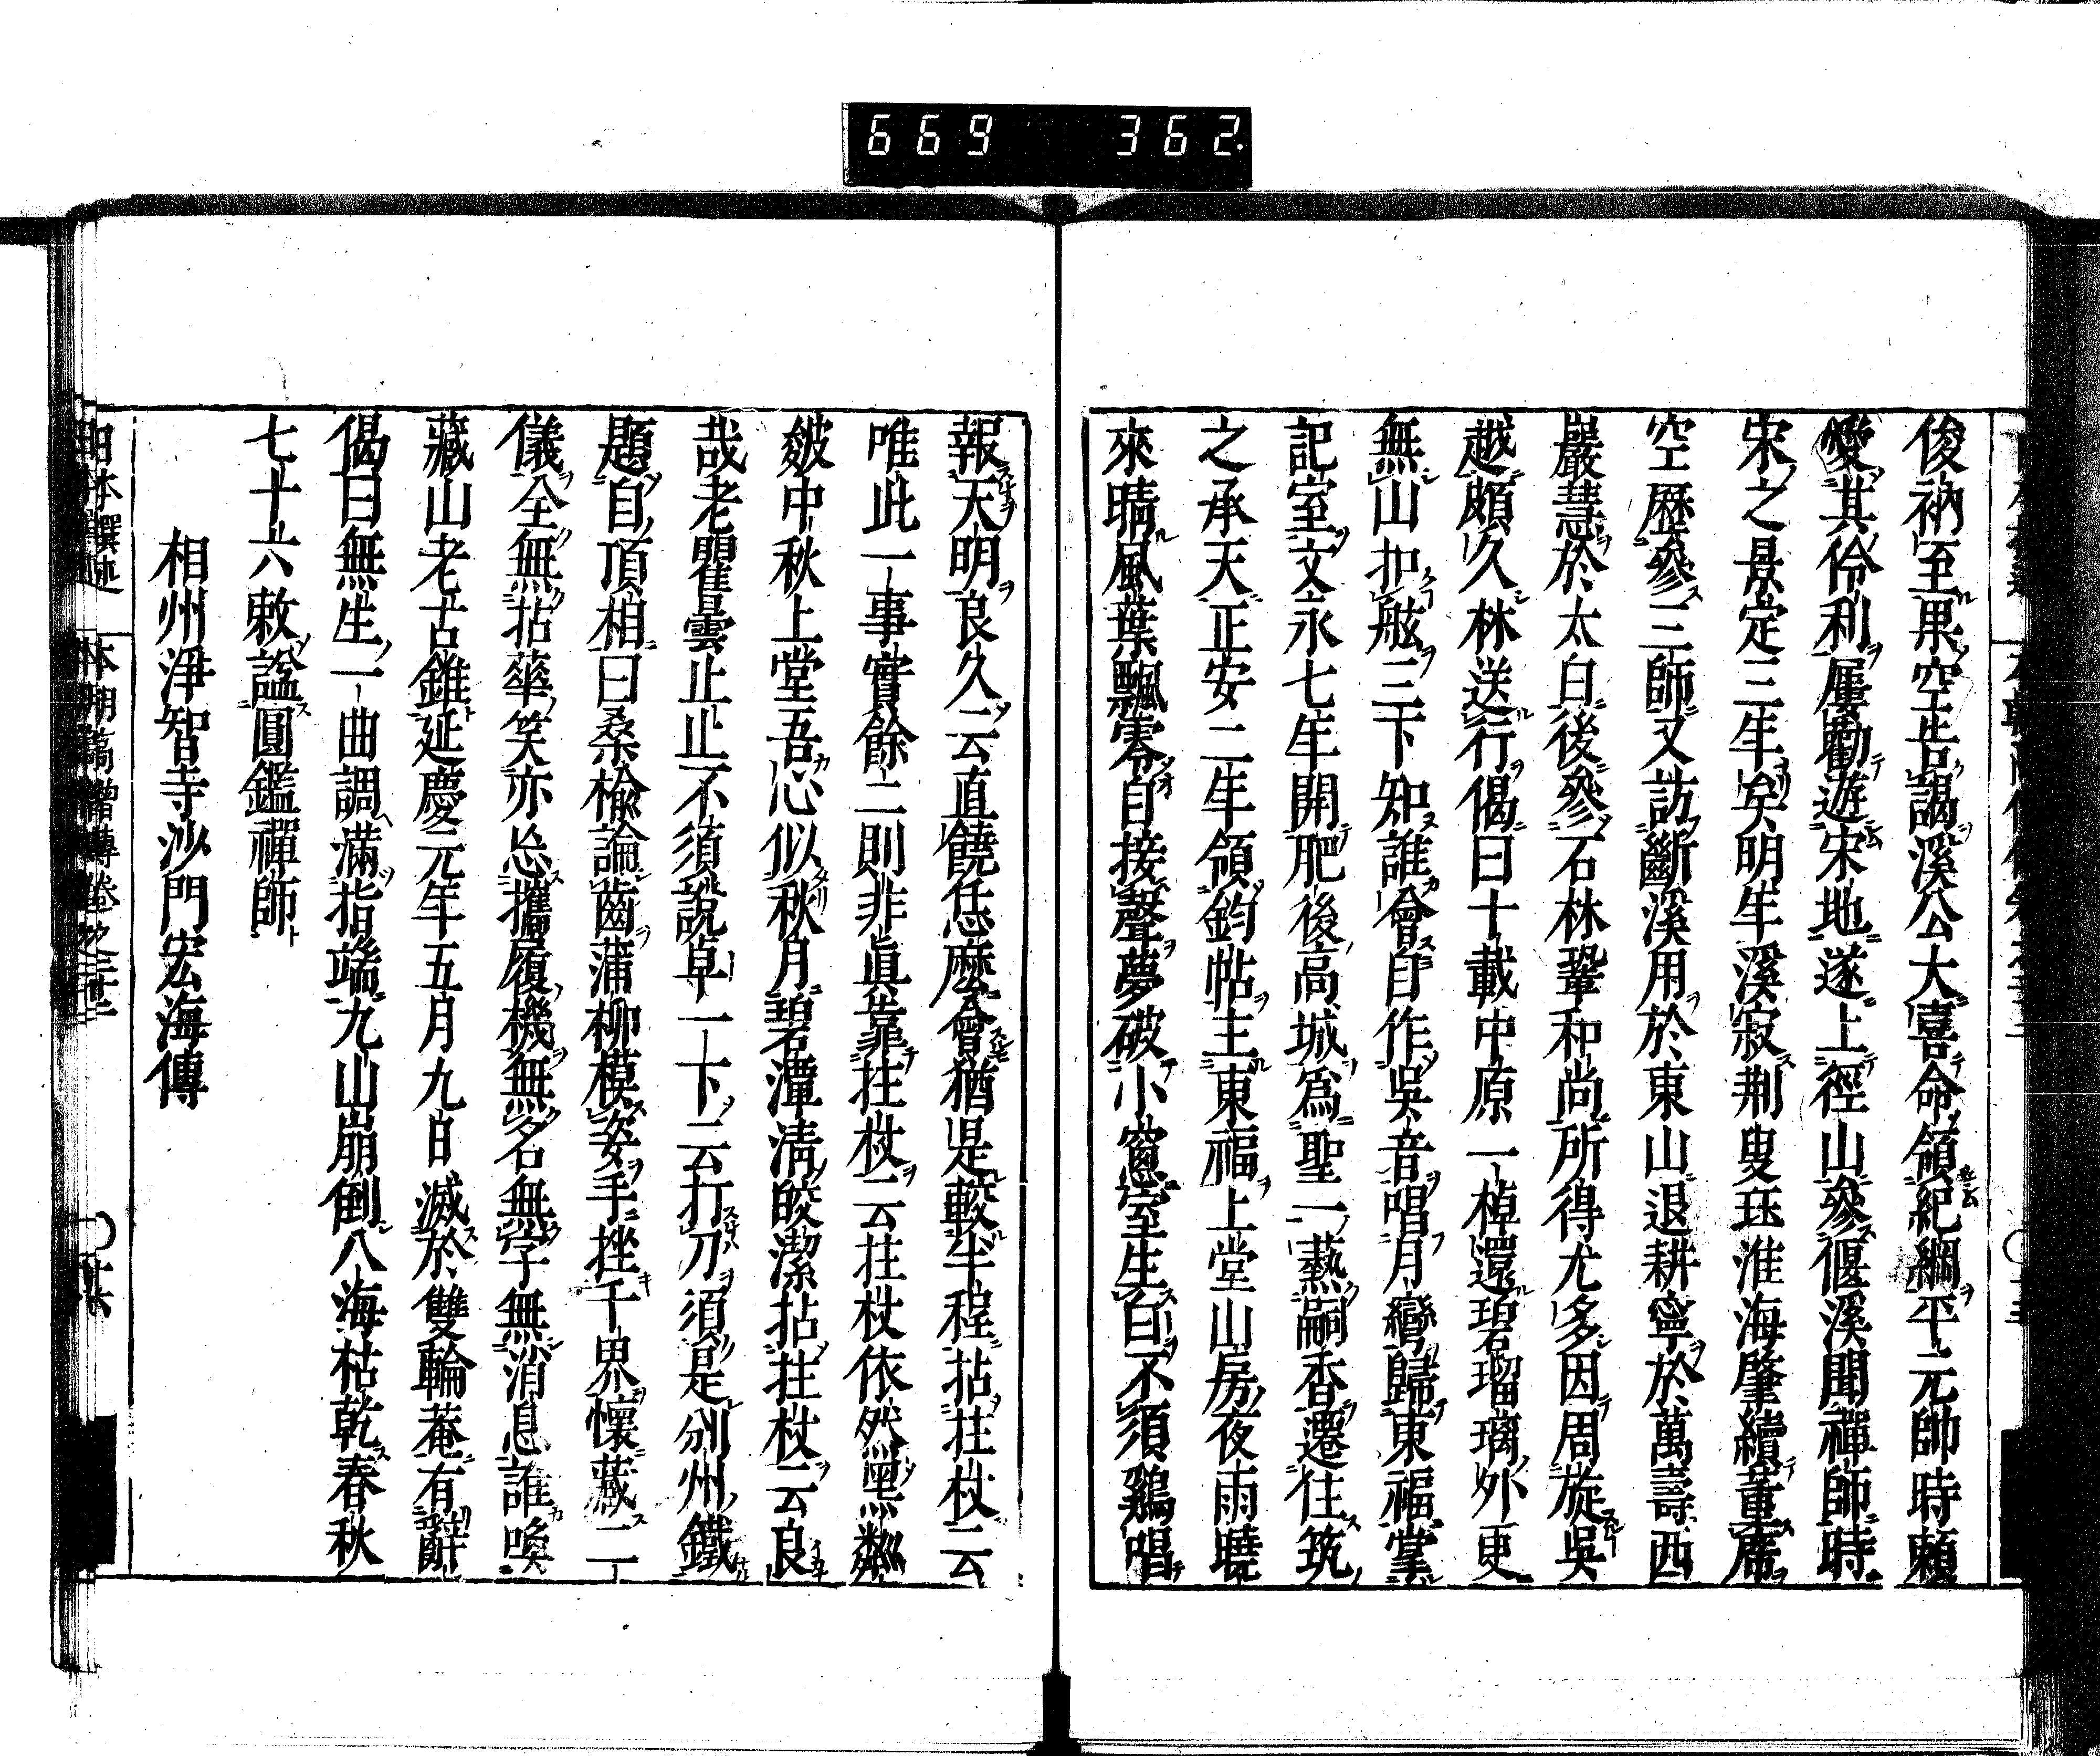 669 362.
俊衲至果空吿謁溪公大喜命領紀綱平元帥時賴
愛其伶利屢勸遊宋地遂上徑山參偃溪聞禪師時
宋之景定三年矣明年溪寂荆叟珏淮海肇續董席
空歷參三師又訪斷溪用於東山退耕寧於萬壽西
巖慧於太白後參石林鞏和尚所得尤多因周旋吳
越頗久林送行偈曰十載中原一棹還碧瑠璃外更
無山扣舷三下知誰會自作吳音唱月彎歸東福掌
記室文永七年開肥後高城爲聖一爇嗣香遷住筑
之承天正安二年領鈞帖主東福上堂山房夜雨曉
來晴風葉飄零自接聲夢破小窻室生白不須鷄唱
報天明良久云直饒恁麼會猶是較半程拈拄杖云
唯此一事實餘二則非眞靠拄杖云拄杖依然黑粼
皴中秋上堂吾心似秋月碧潭淸皎潔拈拄杖云良
哉老瞿曇止止不須說卓一下云打刀須是別州鐵
題自頂相曰桑楡論齒蒲柳模姿手挫千界懷藏二
儀全無拈華笑亦忘攜履機無名無字無消息誰喚
藏山老古錐延慶元年五月九日滅於雙輪菴有辭
偈曰無生一曲調滿指端九山崩倒八海枯乾春秋
七十六敕謚圓鑑禪師
相州淨智寺沙門宏海傳
日本撰述 本朝高僧傳卷之二十二